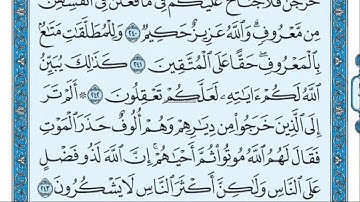 خَرَجْنَ فَلَا جُنَاحَ عَلَيْكُمْ فِي مَا فَعَلْنَ فِي أَنفُسِهِنَّ
مِن مَّعْرُوفٍ وَاللَّهُ عَزِيزٌ حَكِيمٌ ٢٤٠ وَلِلْمُطَلَّقَاتِ مَتَاعٌ
بِالْمَعْرُوفِ حَقًّا عَلَى الْمُتَّقِينَ ٢٤١ كَذَٰلِكَ يُبَيِّنُ
اللَّهُ لَكُمْ ءَايَاتِهِ لَعَلَّكُمْ تَعْقِلُونَ ٢٤٢ ۞ أَلَمْ تَرَ
إِلَى الَّذِينَ خَرَجُوا مِن دِيَارِهِمْ وَهُمْ أُلُوفٌ حَذَرَ الْمَوْتِ
فَقَالَ لَهُمُ اللَّهُ مُوتُوا ثُمَّ أَحْيَاهُمْ إِنَّ اللَّهَ لَذُو فَضْلٍ
عَلَى النَّاسِ وَلَٰكِنَّ أَكْثَرَ النَّاسِ لَا يَشْكُرُونَ ٢٤٣